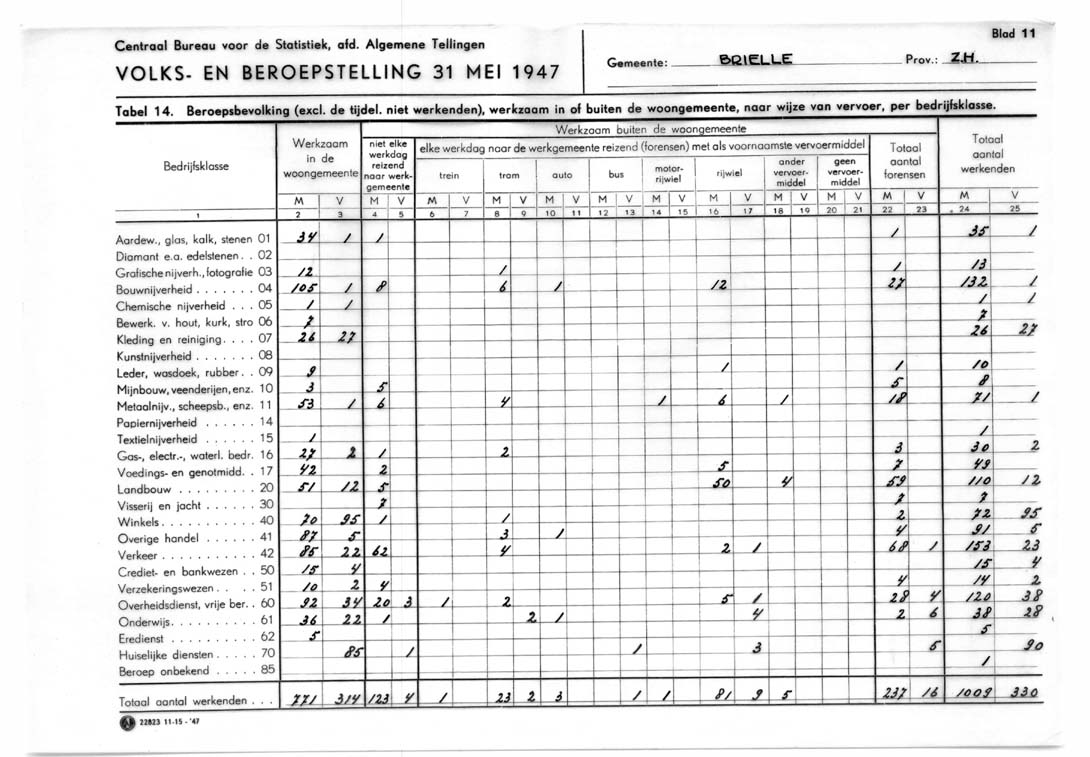 Blad 11
Centraal Bureau voor de Statistiek, afd. Algemene Tellingen
VOLKS- EN BEROEPSTELLING 31 MEI 1947
Gemeente: BRIELLE Prov.: Z.H.
Tabel 14. Beroepsbevolking (excl. de tijdel. niet werkenden), werkzaam in of buiten de woongemeente, naar wijze van vervoer, per bedrijfsklasse.
Bedrijfsklasse
Werkzaam in de woongemeente
Werkzaam buiten de woongemeente
niet elke werkdag reizend naar werkgemeente
elke werkdag naar de werkgemeente reizend (forensen) met als voornaamste vervoermiddel
trein tram auto bus motor-rijwiel rijwiel ander vervoer-middel geen vervoer-middel
Totaal aantal forensen
Totaal aantal werkenden
M V M V M V M V M V M V M V M V M V M V M V M V
1 2 3 4 5 6 7 8 9 10 11 12 13 14 15 16 17 18 19 20 21 22 23 24 25
Aardew., glas, kalk, stenen 01 34 1 1 1 35 1
Diamant e.a. edelstenen . . 02
Grafische nijverh., fotografie 03 12 1 1 13
Bouwnijverheid . . . . . . . 04 105 1 8 6 1 12 27 132 1
Chemische nijverheid . . . 05 1 1 1 1
Bewerk. v. hout, kurk, stro 06 7 7
Kleding en reiniging . . . . 07 26 27 26 27
Kunstnijverheid . . . . . . . 08
Leder, wasdoek, rubber . . 09 9 1 1 10
Mijnbouw, veenderijen, enz. 10 3 5 5 8
Metaalnijv., scheepsb., enz. 11 53 1 6 4 1 6 1 18 71 1
Papiernijverheid . . . . . . 14
Textielnijverheid . . . . . . 15 1 1
Gas-, electr.-, waterl. bedr. 16 27 2 1 2 3 30 2
Voedings- en genotmidd. . 17 42 2 5 7 49
Landbouw . . . . . . . . . 20 51 12 5 50 4 59 110 12
Visserij en jacht . . . . . . 30 7 7 7
Winkels . . . . . . . . . . . 40 70 95 1 1 2 72 95
Overige handel . . . . . . . 41 87 5 3 1 4 91 5
Verkeer . . . . . . . . . . . 42 85 22 62 4 2 1 68 1 153 23
Crediet- en bankwezen . . 50 15 4 15 4
Verzekeringswezen . . . . 51 10 2 4 4 14 2
Overheidsdienst, vrije ber. . 60 92 34 20 3 1 2 5 1 28 4 120 38
Onderwijs. . . . . . . . . . 61 36 22 1 2 1 4 2 6 38 28
Eredienst . . . . . . . . . . 62 5 5
Huiselijke diensten . . . . . 70 85 1 1 3 5 90
Beroep onbekend . . . . . 85 1
Totaal aantal werkenden . . . 771 314 123 4 1 23 2 3 1 1 81 9 5 237 16 1009 330
22823 11-15 - '47